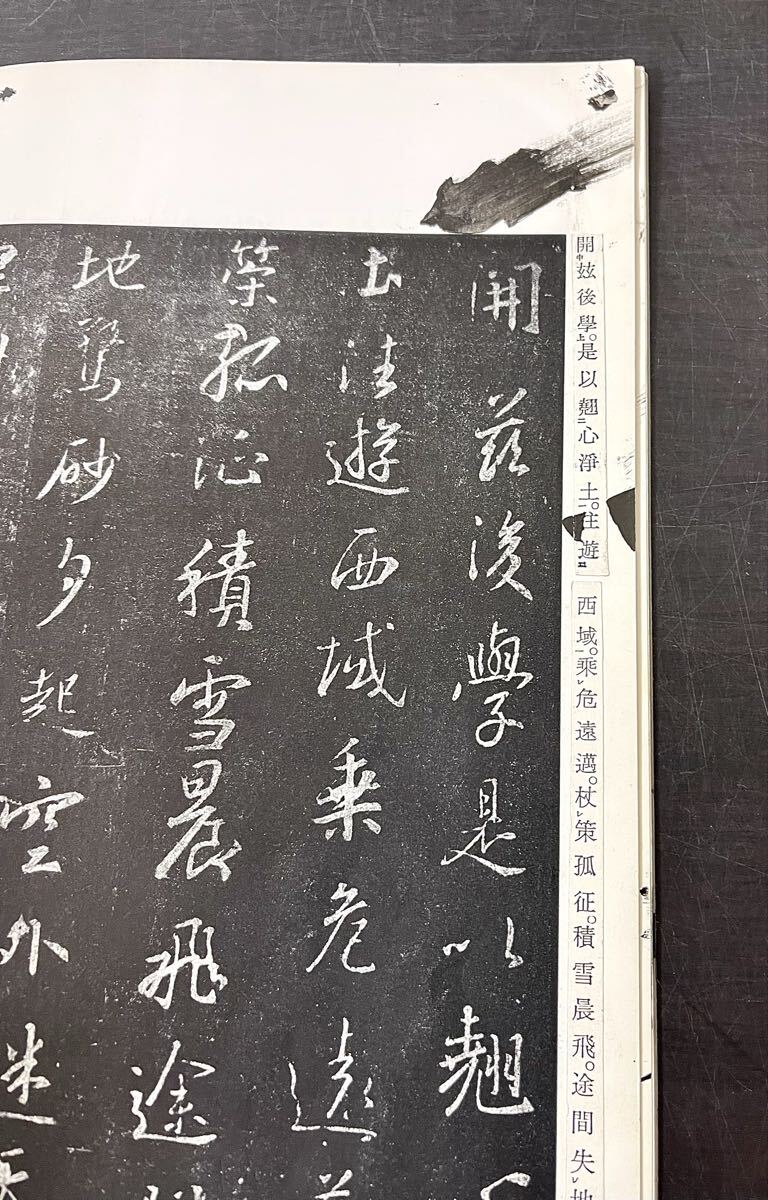 開玆後學。是以翹心淨土。往遊
西域。乗危遠邁。杖策孤征。積雪晨飛。途間失地
開茲後學是以翹
土往遊西域乗危遠
策孤征積雪晨飛途
地驚砂夕起空外迷天